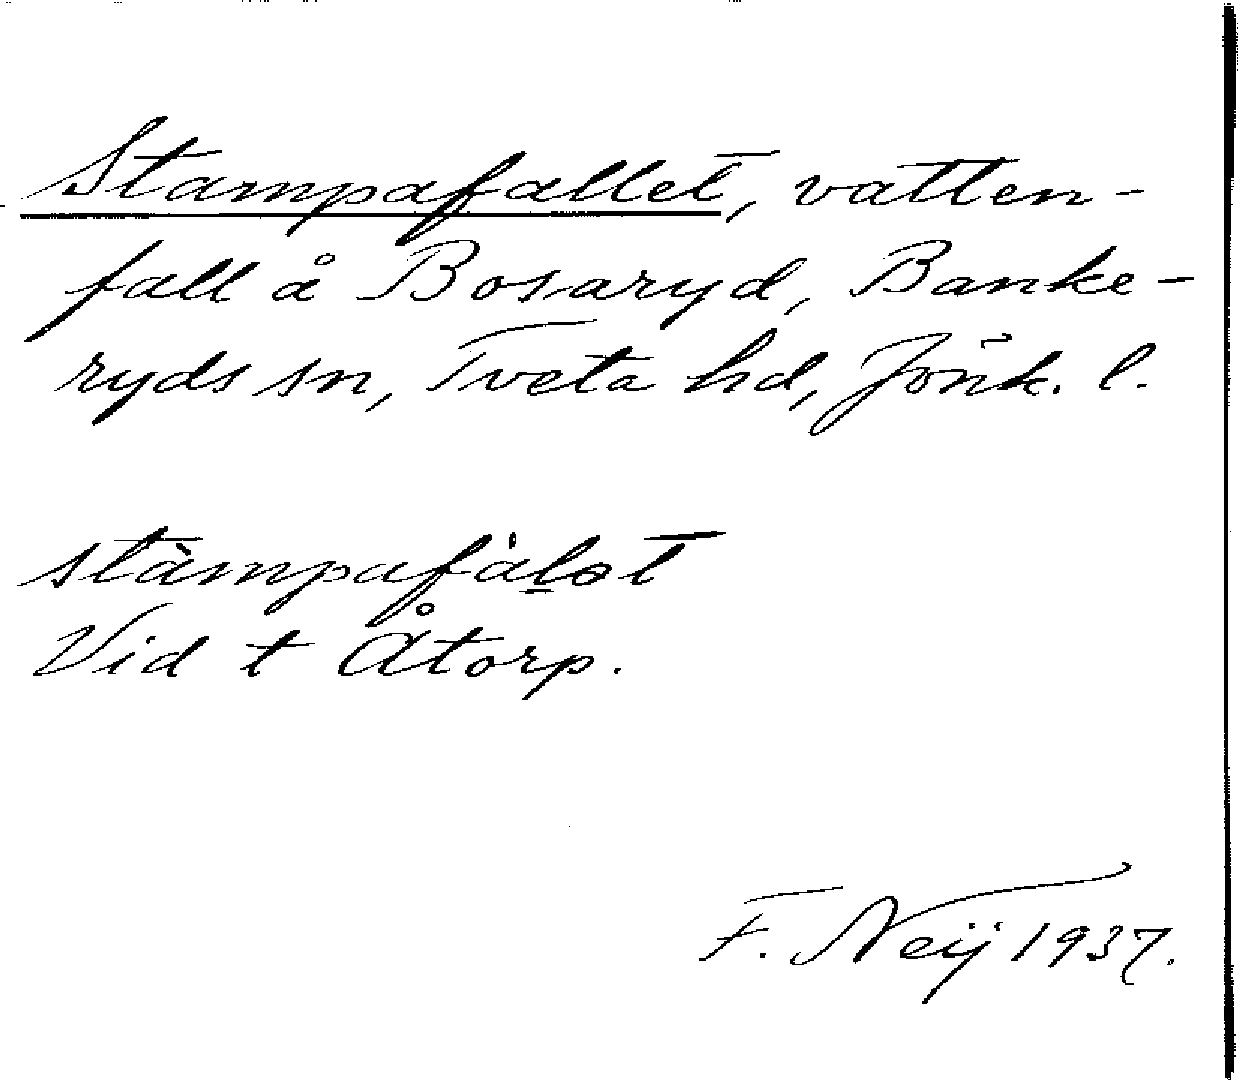 Stampafallet, vatten-
fall å Bosaryd, Banke-
ryds sn, Tveta hd, Jönk. l.
stàmpafàl̲ət
Vid t Åtorp.
F. Neij 1937.